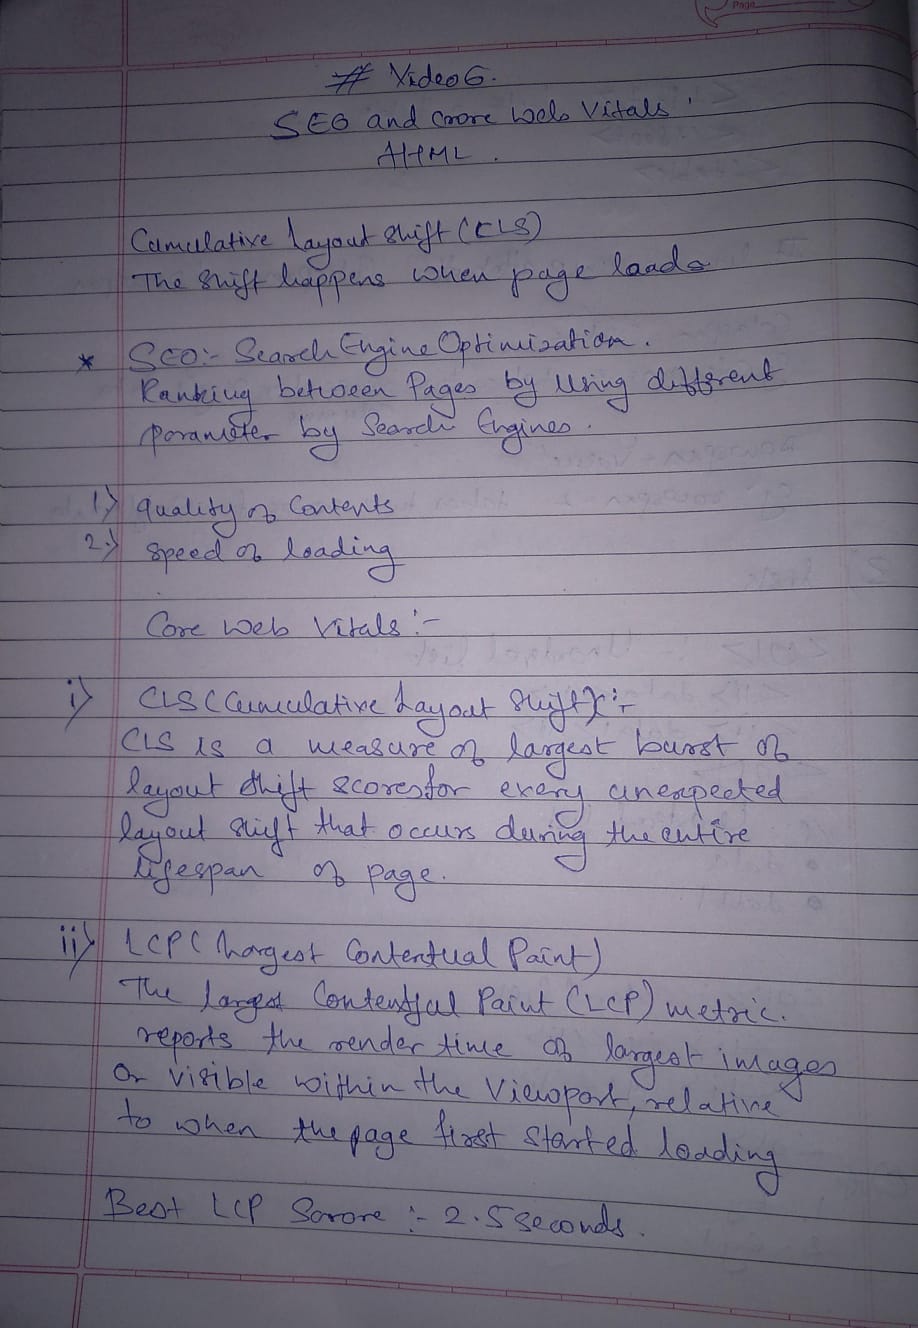 Page
# Video 6.
SEO and Core Web Vitals
HTML.
Cumulative Layout Shift (CLS)
The Shift happens when page loads
* SEO:- Search Engine Optimization.
Ranking between Pages by Using different
parameter by Search Engines.
1) quality of Contents
2) speed of loading
Core Web Vitals :-
i) CLS (Cumulative Layout Shift) :-
CLS is a measure of largest burst of
layout shift scores for every unexpected
layout shift that occurs during the entire
lifespan of page.
ii) LCP ( Largest Contentual Paint)
The largest Contentful Paint (LCP) metric.
reports the render time of largest images
or visible within the Viewport, relative
to when the page first started loading
Best LCP Score :- 2.5 seconds.